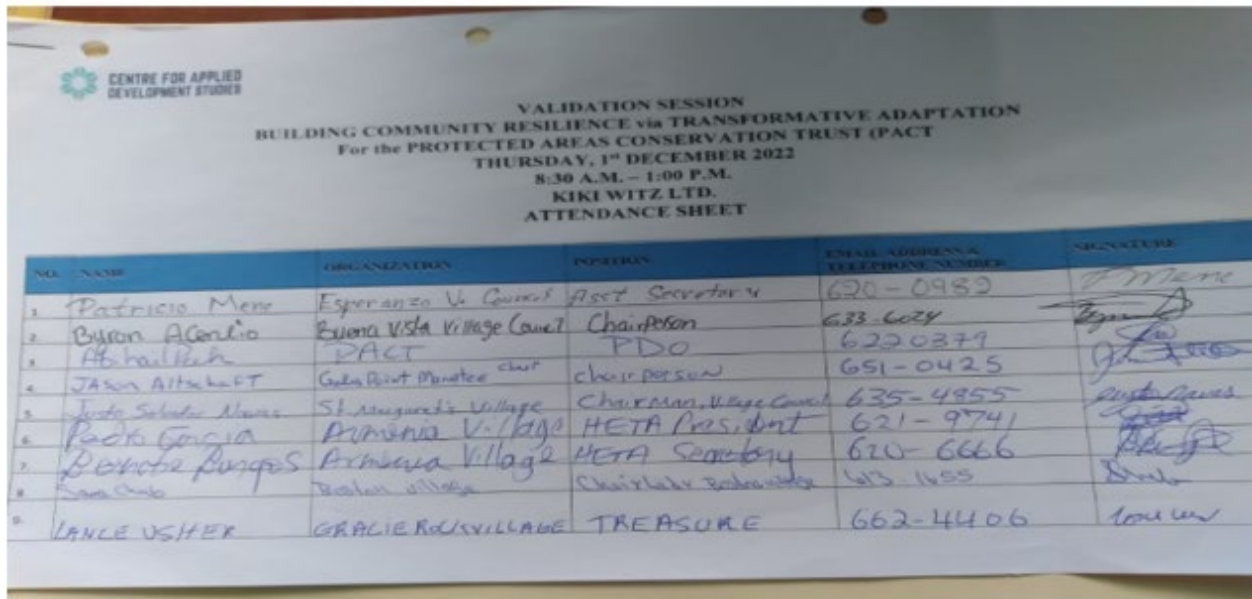 CENTRE FOR APPLIED
DEVELOPMENT STUDIES
VALIDATION SESSION
BUILDING COMMUNITY RESILIENCE via TRANSFORMATIVE ADAPTATION
For the PROTECTED AREAS CONSERVATION TRUST (PACT
THURSDAY, 1st DECEMBER 2022
8:30 A.M. – 1:00 P.M.
KIKI WITZ LTD.
ATTENDANCE SHEET
NO. NAME ORGANIZATION POSITION EMAIL ADDRESS & TELEPHONE NUMBER SIGNATURE
1. Patricio Mene Esperanza V. Council Asst Secretary 620-0982 PMene
2. Byron Acenlio Buena Vista Village Council Chairperson 633-6024
3. PACT PDO 6220379
4. JAson Altschaft Gales Point Manatee chairperson 651-0425
5. Justo Salvador Nunez St. Margaret's Village Chairman, Village Council 635-4955
6. Pedro Garcia Armenia Village HETA President 621-9741
7. Armenia Village HETA Secretary 620-6666
8. village 613-1655
9. LANCE USHER GRACIE ROCK VILLAGE TREASURE 662-4406